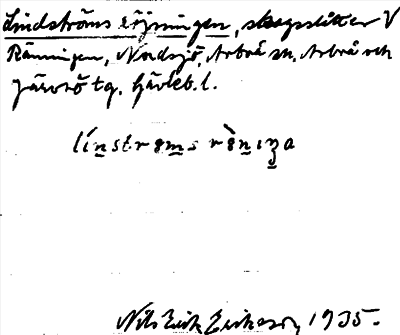 Lindströms röjningen, skogsslått av V
Ränningen, Nordsjö, Arbrå sn, Arbrå och
Järvsö tg. Gävleb. l.
línstrəms rə̀nıŋa
Nils Erik Eriksson, 1935.